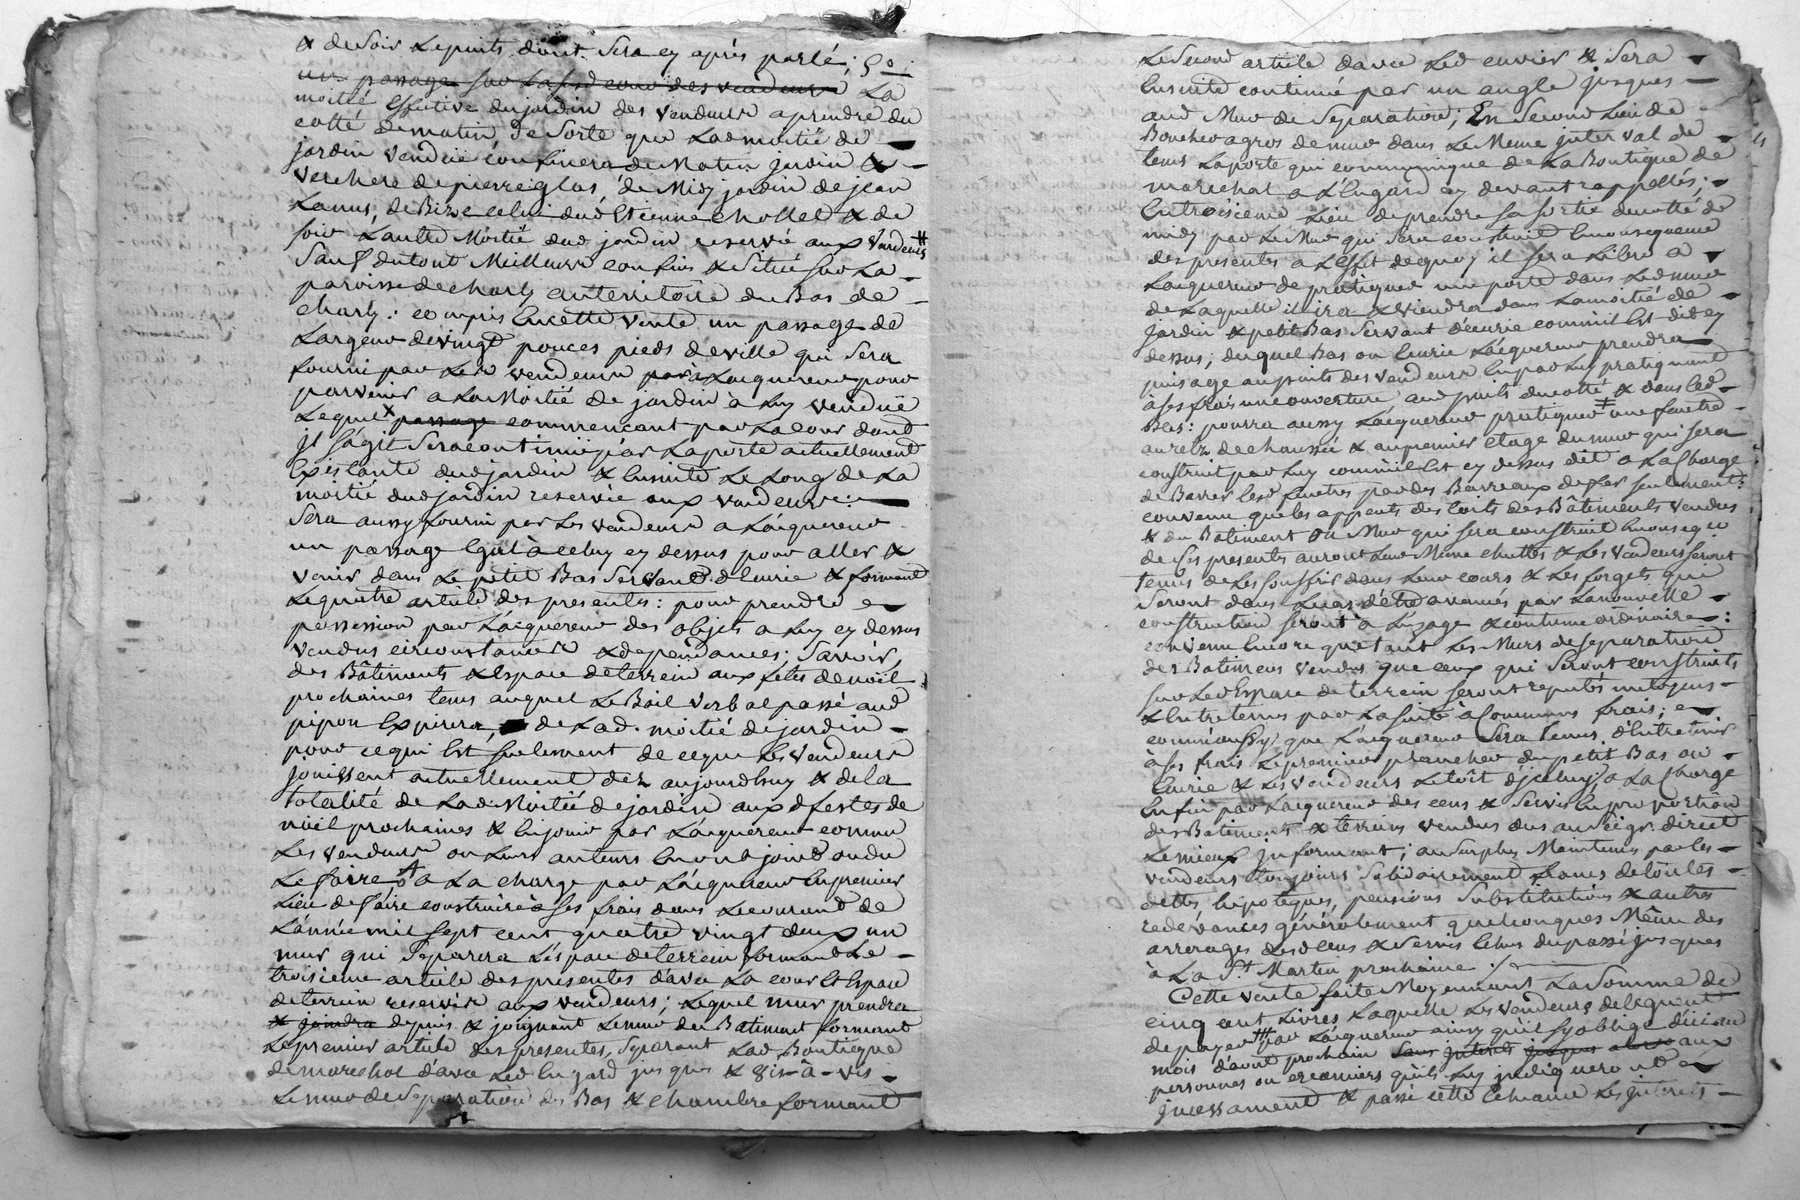 & de Soir Le puits dont Sera cy après parlé; 5º
un passage sur La susd cour des vendeurs La
moitié Effective du jardin des vendeurs a prendre du
cotté de matin de Sorte que Lad moitié de
jardin vendüe confinera de Matin jardin &
verchere de pierre glas, de Midy jardin de jean
Lanus, de Bize celui dud Etienne chollet & de
soir L'autre Moitié dud jardin reservé aux vendeurs #
Sauf du tout Meilleurs confins & Situé sur La
paroisse de charly au territoire du Bas de
charly: compris En cette vente un passage de
Largeur de vingt pouces pieds de ville qui Sera
fourni par Les vendeurs à L'acquereur pour
parvenir a La Moitié de jardin à Luy vendüe
Lequel x passage commencant par La cour dont
jl s'agit Sera continüé par La porte actuellement
Existante dud jardin & Ensuite Le Long de La
moitié dud jardin reservée aux vendeurs:
Sera aussy fourni par Les vendeurs a L'acquereur
un passage Egal à celuy cy dessus pour aller &
venir dans Le petit Bas Servant d'Ecurie & formant
Le quatre article des presentes: pour prendre
possession par L'acquereur des objets a Luy cy dessus
vendus circonstances & dependances; Savoir,
des Bâtiments & Espace de terrein aux fetes de noël
prochaines tems auquel Le Bail verbal passé aud
pipon Expirera, de Lad. moitié de jardin
pour ce qui Est seulement de ce que Les vendeurs
jouissent actuellement dez aujourdhuy & de la
totalité de Lad. Moitié de jardin aux d festes de
noël prochaines & En jouir par L'acquereur comme
Les vendeurs ou Leurs auteurs En ont joüi ou du
Le faire a La charge par L'acquereur En premier
Lieu de faire construire à ses frais dans Le courant de
L'année mil sept cent quatre vingt deux un
mur qui Separera L'espace de terrein formant Le
troisieme article des presentes d'avec La cour & Espace
de terrein reservés aux vendeurs; Lequel mur prendra
& joindra depuis & joignant Le mur du Batiment formant
Le premier article des presentes, Separant Lad Boutique
de marechal d'avec Led Engard jusques & vis-à-vis
Le mur de Separation du Bas & chambre formant
Le Second article d'avec Led cuvier & Sera
Ensuite continué par un angle jusques
aud Mur de Separation; En Second Lieu de
Boucher a gros de mur dans Le Meme jnterval de
tems La porte qui communique de La Boutique de
marechal a L'Engard cy devant rappellés;
En troisieme Lieu de prendre Sa sortie du cotté de
midy par Le Mur qui Sera construit En consequence
des presentes a L'effet de quoy il sera Libre a
L'acquereur de pratiquer une porte dans Led mur
de Laquelle il ira & viendra dans La moitié de
Jardin & petit Bas Servant d'Ecurie comme il Est dit cy
dessus; duquel Bas ou Ecurie L'acquereur prendra
puisage au puits des vendeurs En par Luy pratiquant
à ses frais une ouverture aud puits du cotté & dans Led
Bas: pourra aussy L'acquereur pratiquer # une fenetre
au retz de chaussée & au premier etage du mur qui sera
construit par Luy comme il Est cy dessus dit a La Charge
de Barrer Lesd fenetres par des Barreaux de fer seulement:
convenu que les appents des toits des Bâtiments vendus
& du Bâtiment ou Mur qui sera construit En conseq ce
de Ses presentes auront Leur Même chuttes & Les vendeurs seront
tenus de Les souffrir dans Leur cours & Les forgets qui
Seront dans Le cas d'être avancés par La nouvelle
construction seront à L'uzage & coutume ordinaire:
convenu Encore que tant Les Murs de Separation
des Batimens vendus que ceux qui seront construits
sur Led Espace de terrein seront reputés mitoyens
& Entretenus par La suite à Communs frais;
comme aussy que L'acquereur Sera tenu d'Entretenir
à ses frais Le premier plancher du petit Bas ou
Ecurie & Les vendeurs Le toit d'jceluy; a La Charge
Enfin par L'acquereur des cens & Servis En proportion
des Batiments & terreins vendus dus au Seigr. direct
Le mieux jnformant; au surplus Maintenus par les
vendeurs toujours Solidairement francs de toutes
dettes hipoteques, pensions Substitutions & autres
redevances généralement quelconques Même des
arrerages desd cens & Servis Echus du passé jusques
à La St. Martin prochaine ./.
Cette vente faite Moyennant La Somme de
cinq cent Livres Laquelle Les vendeurs deleguent
de payer # par L'acquereur ainsy qu'il s'y oblige d'ici au
mois d'aout prochain sans jnterets jusques alors aux
personnes ou creanciers qu'ils Luy jndiqueront
jncessament & passé cette Echeance Les jnterets